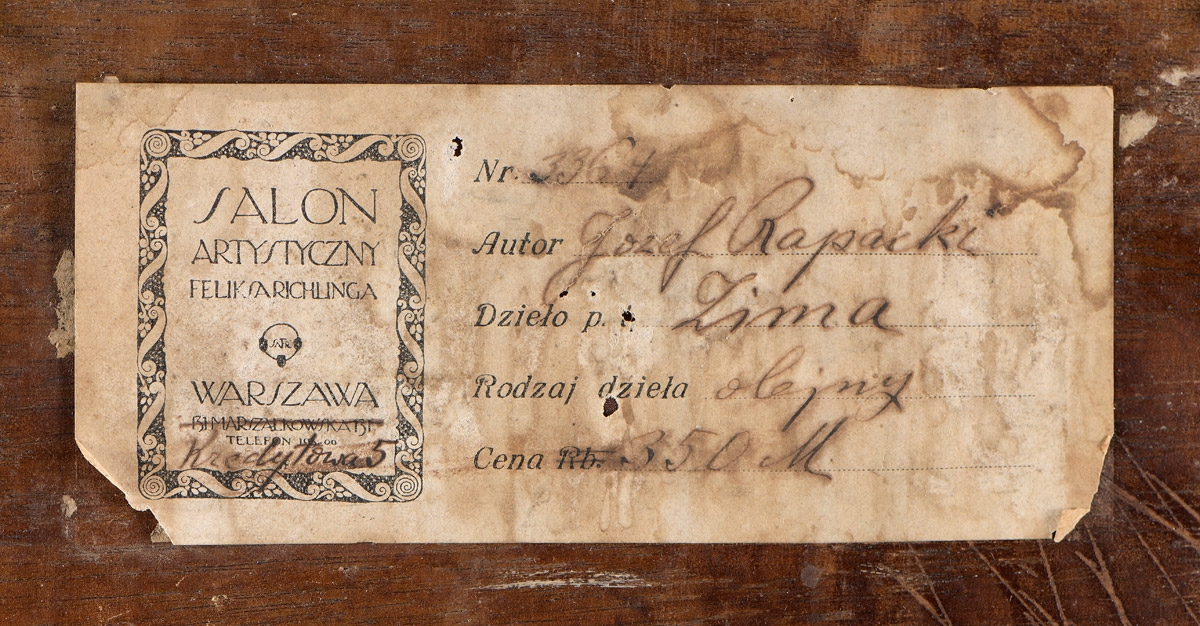 SALON
ARTYSTYCZNY
FELIKSA RICHLINGA
WARSZAWA
131 MARSZAŁKOWSKA 131
TELEFON
Kredytowa 5
Nr. 3364
Autor Józef Rapacki
Dzieło p. t. Zima
Rodzaj dzieła olejny
Cena Rb. 350 M